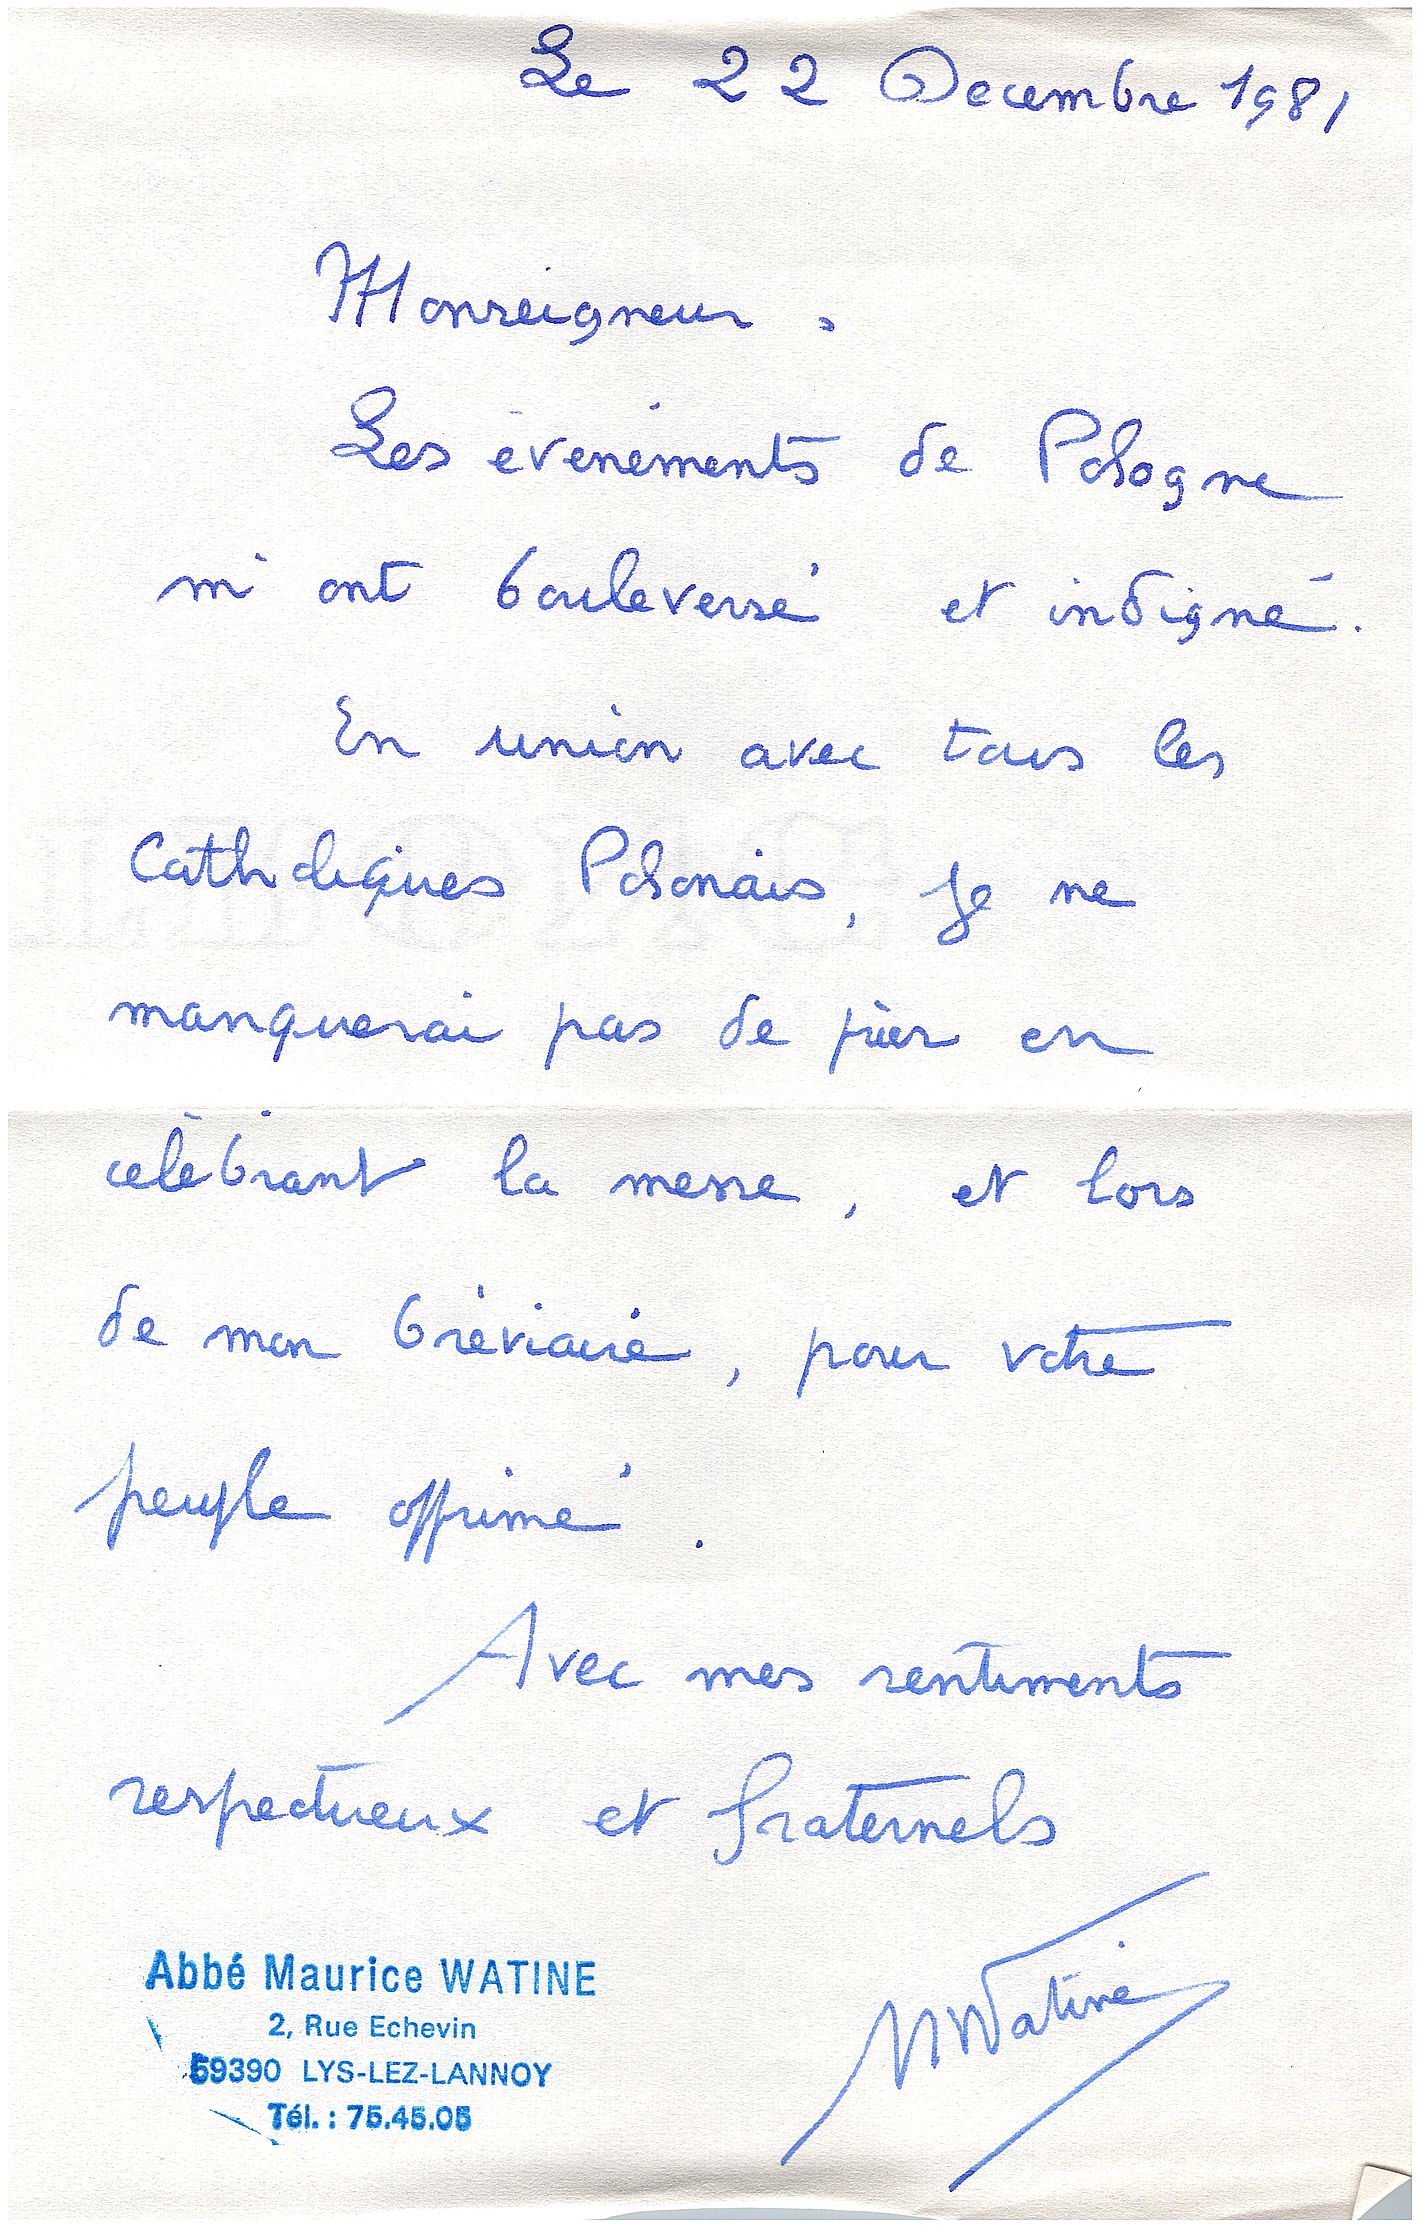 Le 22 Decembre 1981
Monseigneur,
Les évenéments de Pologne
m'ont bouleversé et indigné.
En union avec tous les
Catholiques Polonais, je ne
manquerai pas de prier en
célébrant la messe, et lors
de mon bréviaire, pour votre
peuple opprimé.
Avec mes sentiments
respectueux et fraternels
MWatine
Abbé Maurice WATINE
2, Rue Echevin
59390 LYS-LEZ-LANNOY
Tél. : 75.45.05